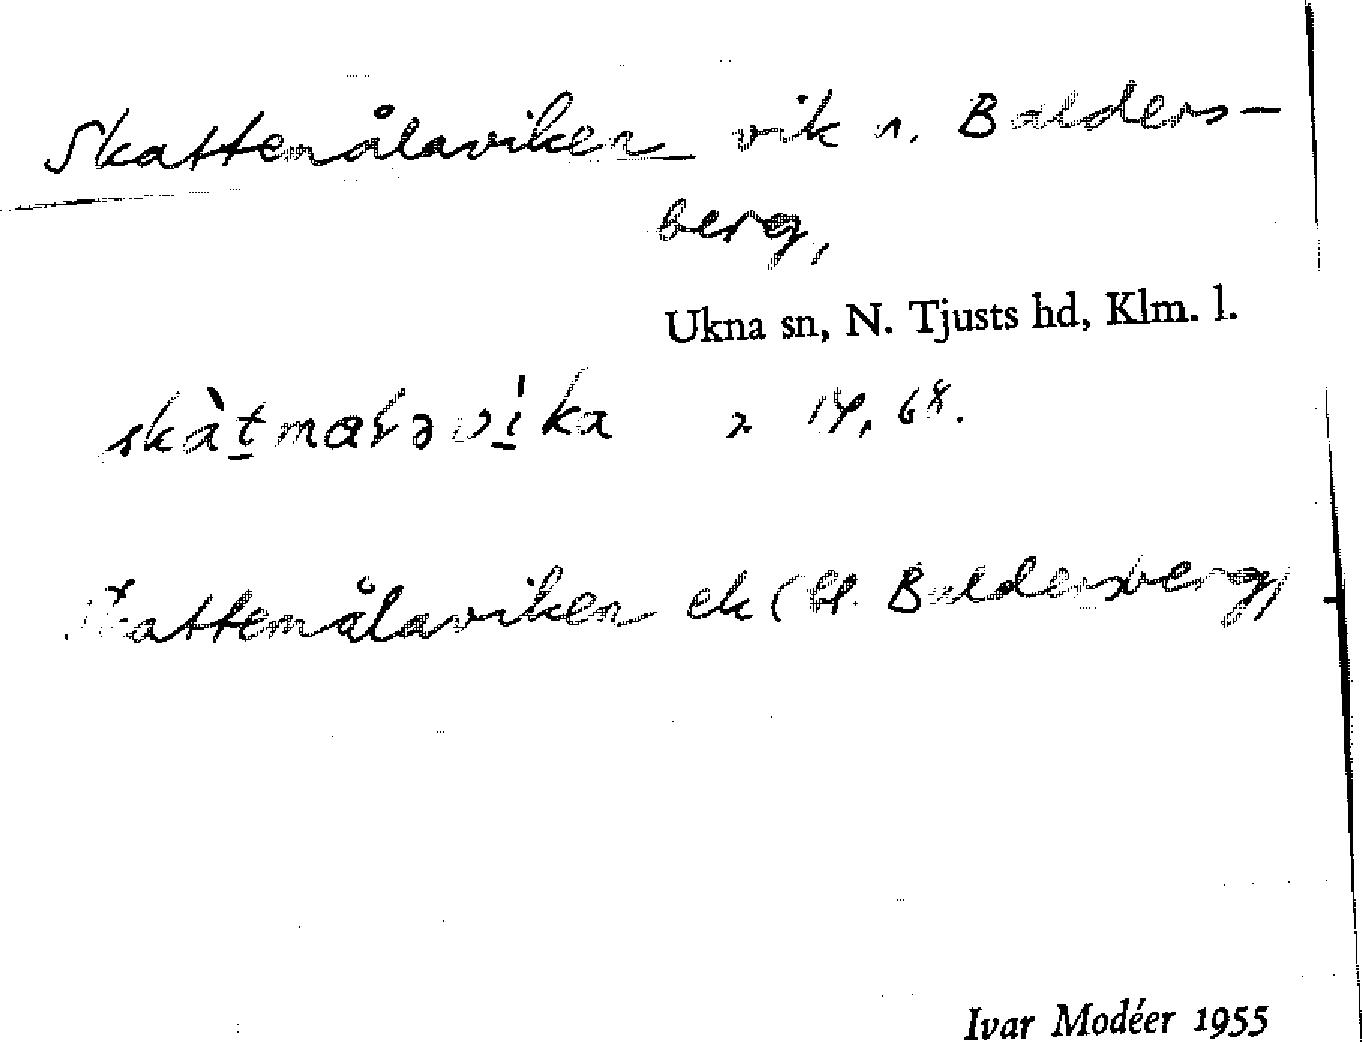 Skattemålaviken vik n. Balders-
berg,
Ukna sn, N. Tjusts hd, Klm. l.
skàt̠maɽəvi̠ˈka 2 14, 68.
Skattemålaviken ek (lt. Baldersberg)
Ivar Modéer 1955